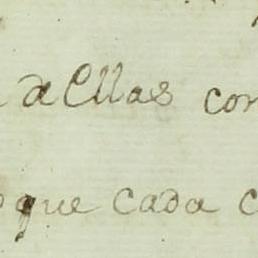 de Ellas con
que cada